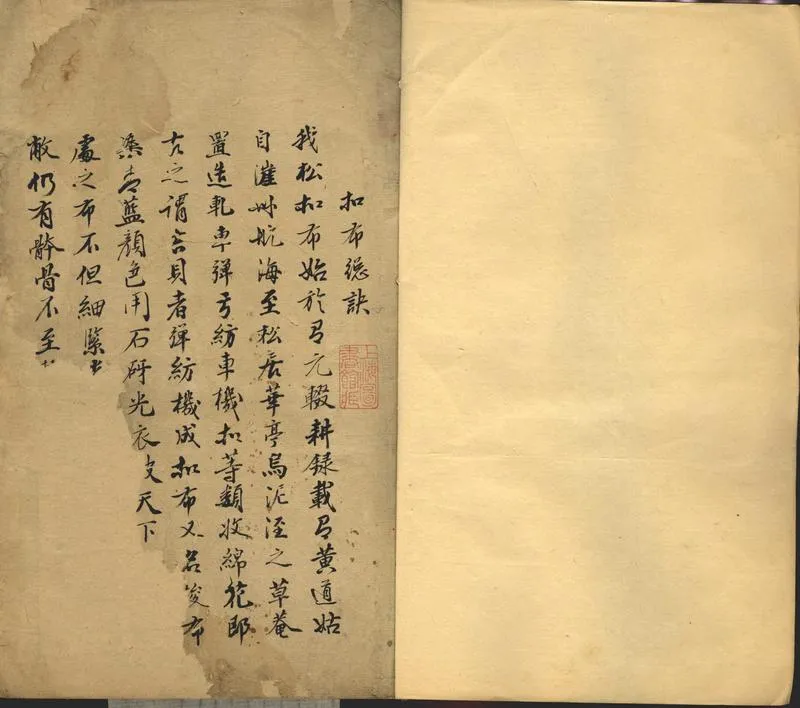 扣布總訣
我松扣布始於有元輟耕錄載有黃道姑
自漼州航海至松居華亭烏泥涇之草菴
置造軋車彈弓紡車機扣等類收綿花郎
古之謂吉貝者彈紡機成扣布又名岌布
染青藍顏色用石砑光衣文天下
處之布不但細緊
敝仍有骨不至
上海圖書館藏